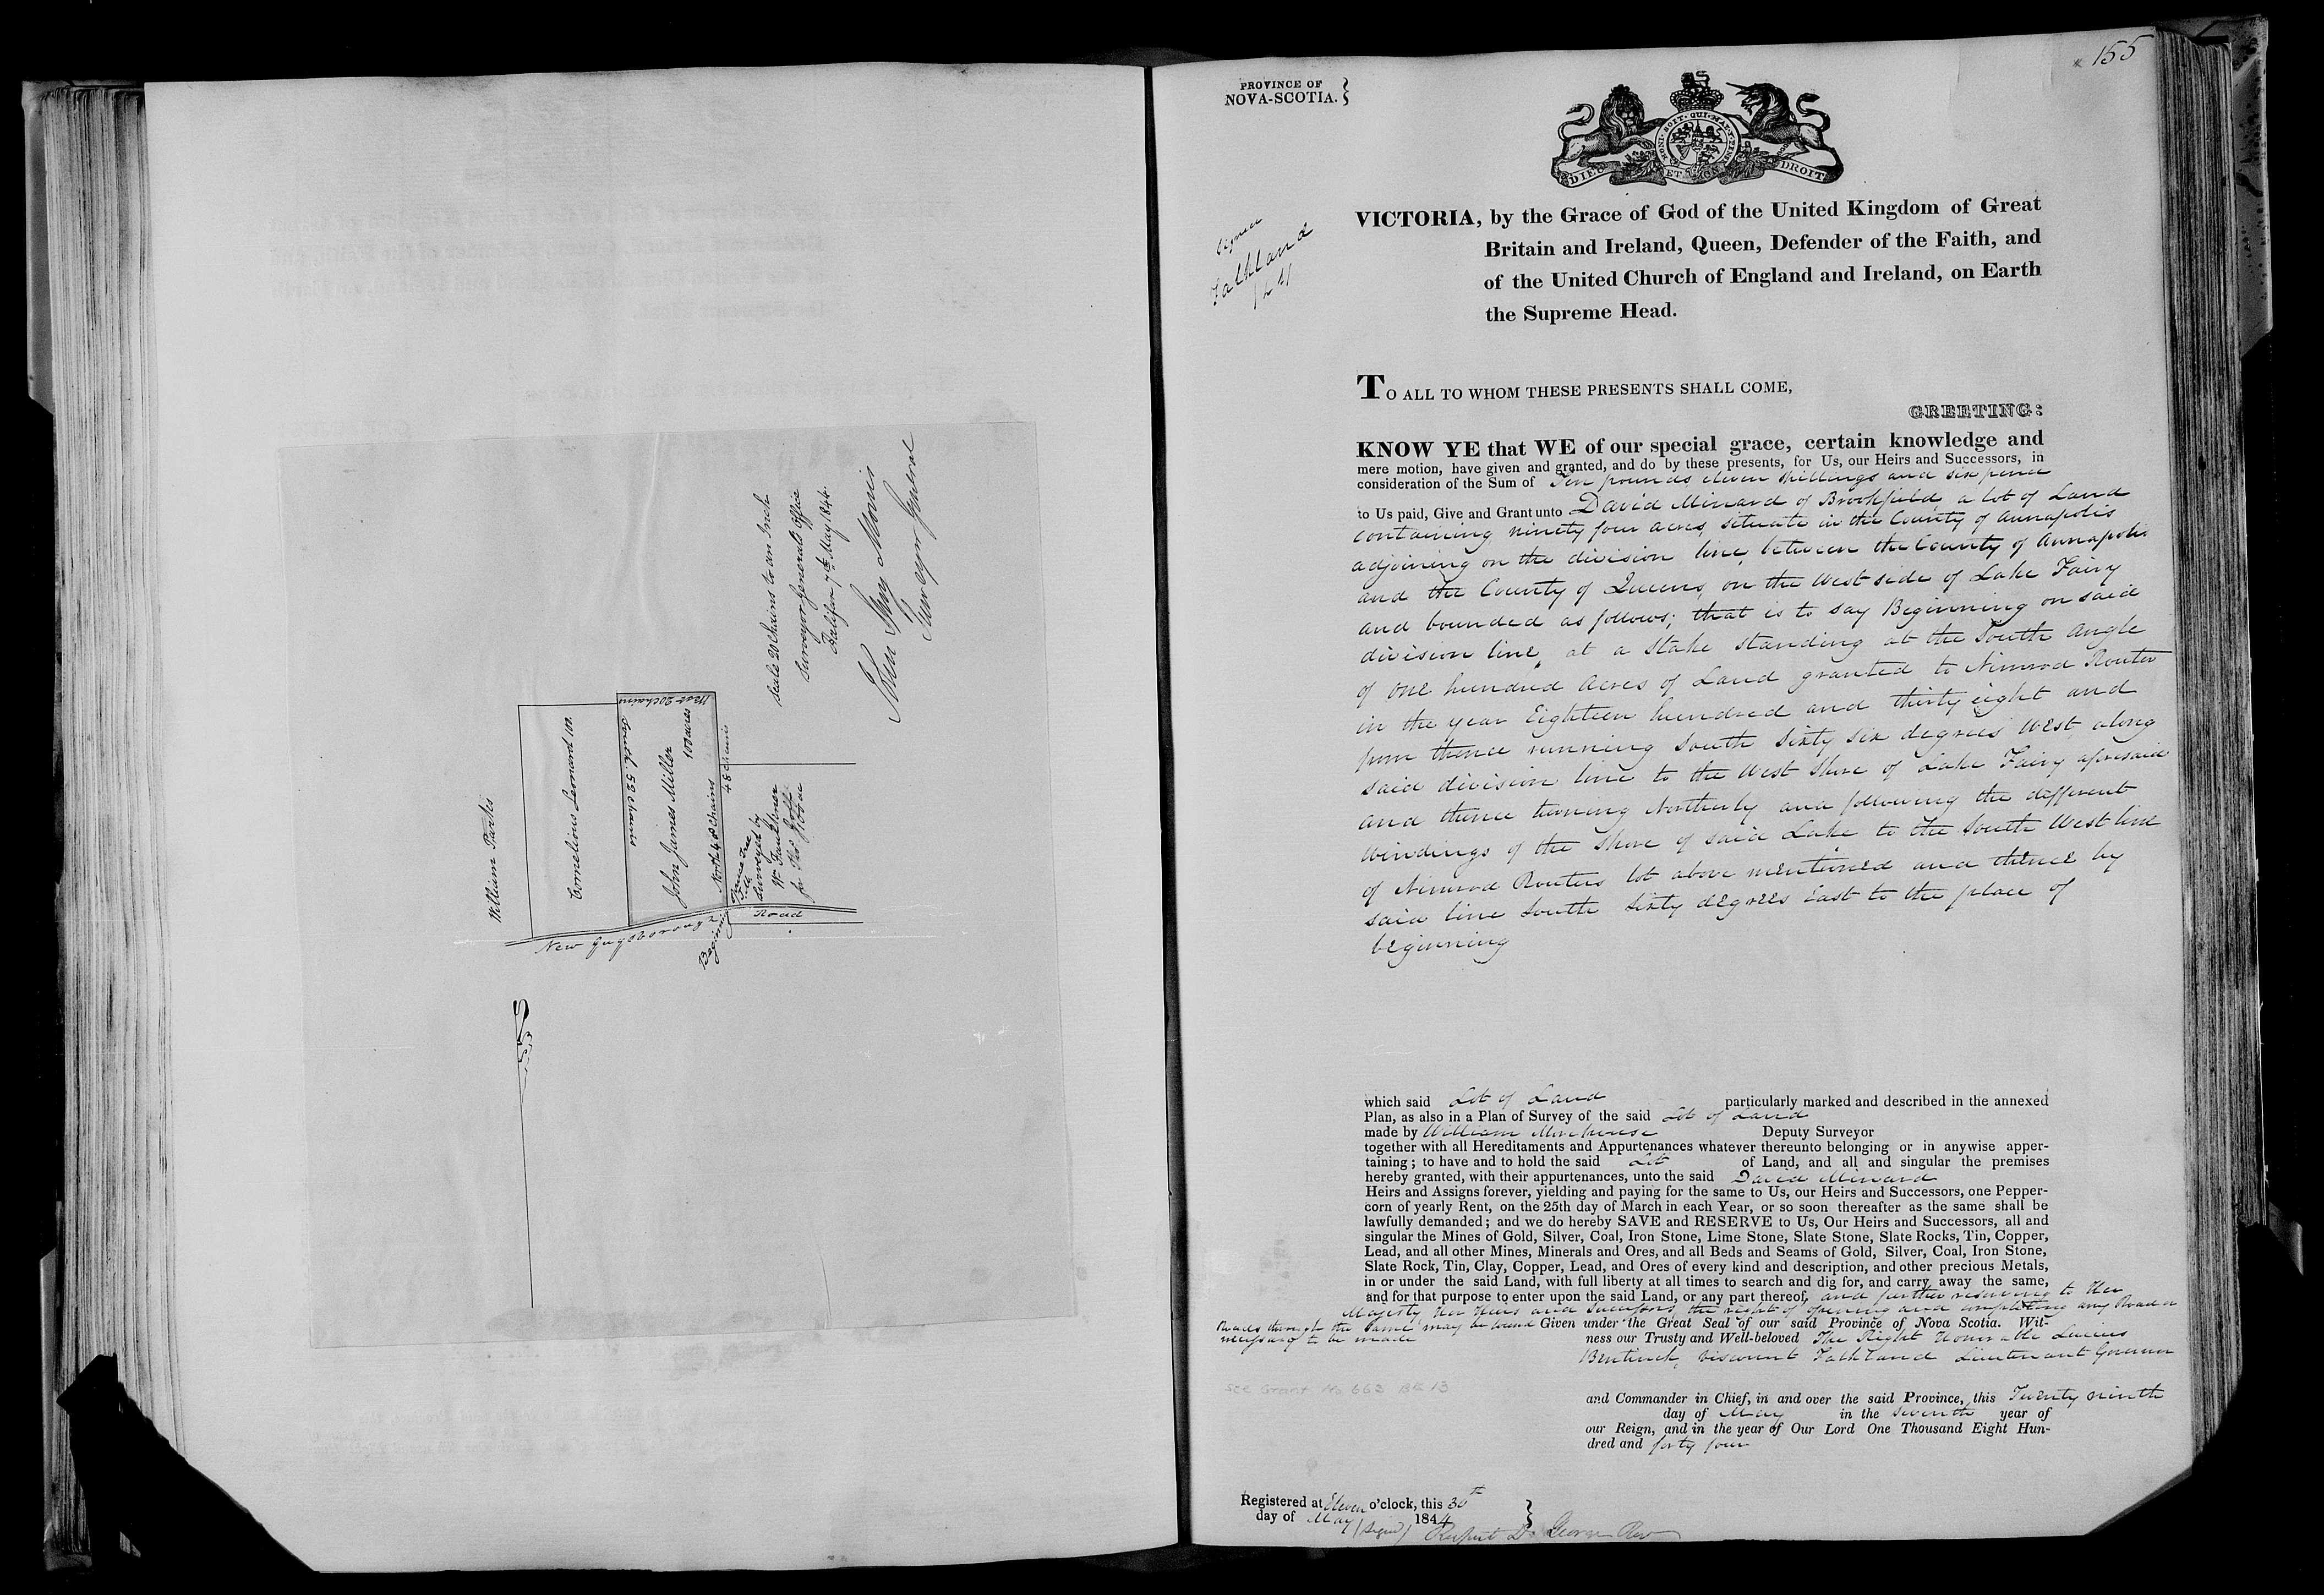 William Parks
Cornelious Leonard 100
South 52 chains
John James Miller
100 acres
West 20 chains
North 48 chains
48 Chains
Surveyed by
W. Faulkner
for Thos
New Guysborough
Road
Beginning
Scale 20 Chains to an Inch
Surveyor Generals Office
Halifax 7th May 1844.
John Spry Morris
Surveyor General
155
PROVINCE OF
NOVA-SCOTIA.
HONI·SOIT·QUI·MAL·Y·PENSE
DIEU ET MON DROIT
Signed
Falkland
VICTORIA, by the Grace of God of the United Kingdom of Great
Britain and Ireland, Queen, Defender of the Faith, and
of the United Church of England and Ireland, on Earth
the Supreme Head.
TO ALL TO WHOM THESE PRESENTS SHALL COME,
GREETING:
KNOW YE that WE of our special grace, certain knowledge and
mere motion, have given and granted, and do by these presents, for Us, our Heirs and Successors, in
consideration of the Sum of Ten pounds eleven shillings and six pence
to Us paid, Give and Grant unto David Minard of Brookfield, a lot of Land
containing ninety four acres, situate in the County of Annapolis
adjoining on the division line, between the County of Annapolis
and the County of Queens, on the West side of Lake Fairy
and bounded as follows; that is to say Beginning on said
division line, at a Stake standing at the South Angle
of one hundred Acres of Land granted to Nimrod Router
in the year Eighteen hundred and thirty eight and
from thence running South Sixty six degrees West along
said division line to the West Shore of Lake Fairy aforesaid
and thence turning Northerly and following the different
windings of the Shore of said Lake to the South West line
of Nimrod Routers lot above mentioned and thence by
said line South Sixty degrees East to the place of
beginning
which said Lot of Land particularly marked and described in the annexed
Plan, as also in a Plan of Survey of the said Lot of Land
made by William Deputy Surveyor
together with all Hereditaments and Appurtenances whatever thereunto belonging or in anywise apper-
taining; to have and to hold the said Lot of Land, and all and singular the premises
hereby granted, with their appurtenances, unto the said David Minard
Heirs and Assigns forever, yielding and paying for the same to Us, our Heirs and Successors, one Pepper-
corn of yearly Rent, on the 25th day of March in each Year, or so soon thereafter as the same shall be
lawfully demanded; and we do hereby SAVE and RESERVE to Us, Our Heirs and Successors, all and
singular the Mines of Gold, Silver, Coal, Iron Stone, Lime Stone, Slate Stone, Slate Rocks, Tin, Copper,
Lead, and all other Mines, Minerals and Ores, and all Beds and Seams of Gold, Silver, Coal, Iron Stone,
Slate Rock, Tin, Clay, Copper, Lead, and Ores of every kind and description, and other precious Metals,
in or under the said Land, with full liberty at all times to search and dig for, and carry away the same,
and for that purpose to enter upon the said Land, or any part thereof, and further reserving to Her
Majesty Her Heirs and Successors, the right of opening and completing any Road or
Roads through the Same, may be found
necessary to be made
Given under the Great Seal of our said Province of Nova Scotia. Wit-
ness our Trusty and Well-beloved The Right Honorable Lucius
Bentinck, Viscount Falkland Lieutenant Governor
See Grant No 662 Bk 13
and Commander in Chief, in and over the said Province, this Twenty ninth
day of May in the Seventh year of
our Reign, and in the year of Our Lord One Thousand Eight Hun-
dred and forty four
Registered at Eleven o'clock, this 30th
day of May 1844
(Signed) Rupert D. George